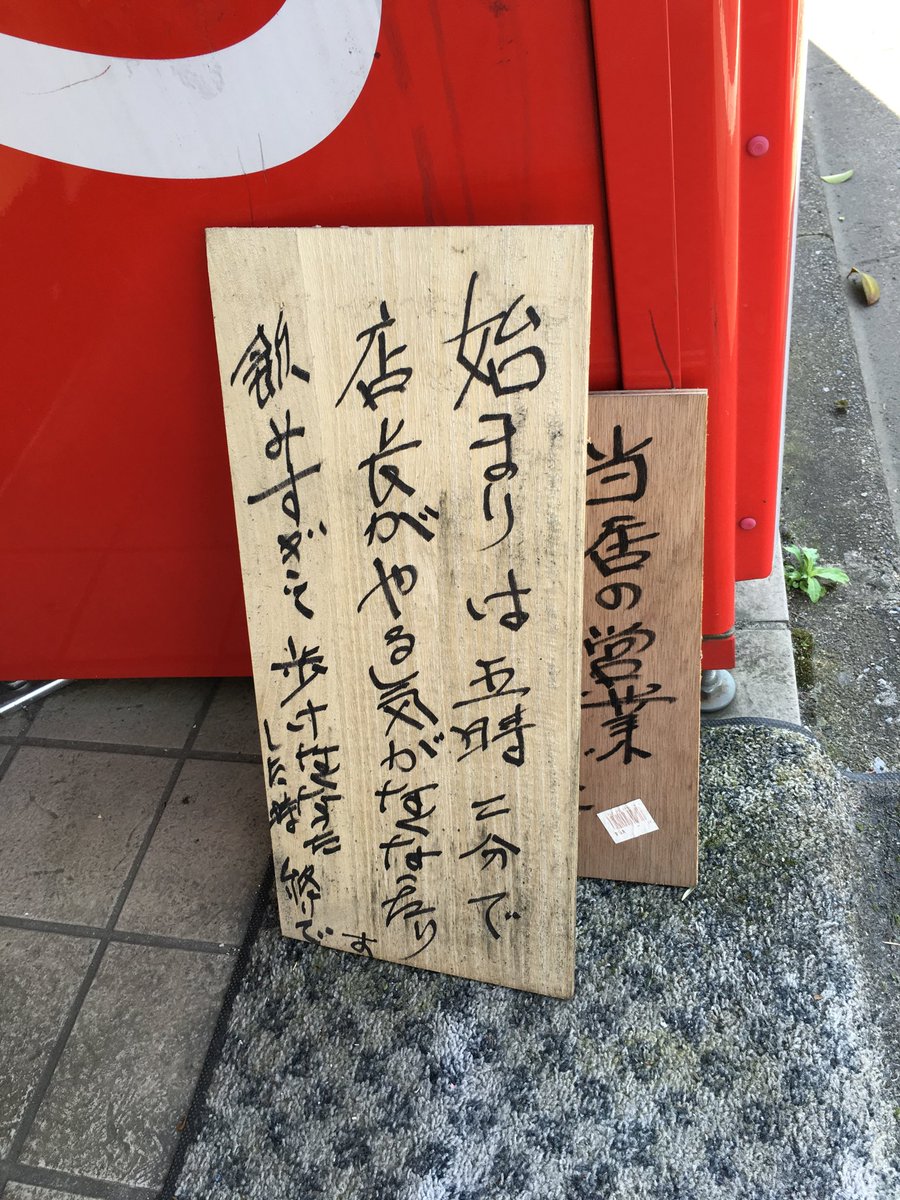 当店の営業
始まりは五時二分で
店長がやる気がなくなったり
飲みすぎて歩けなくなった
した時終りです